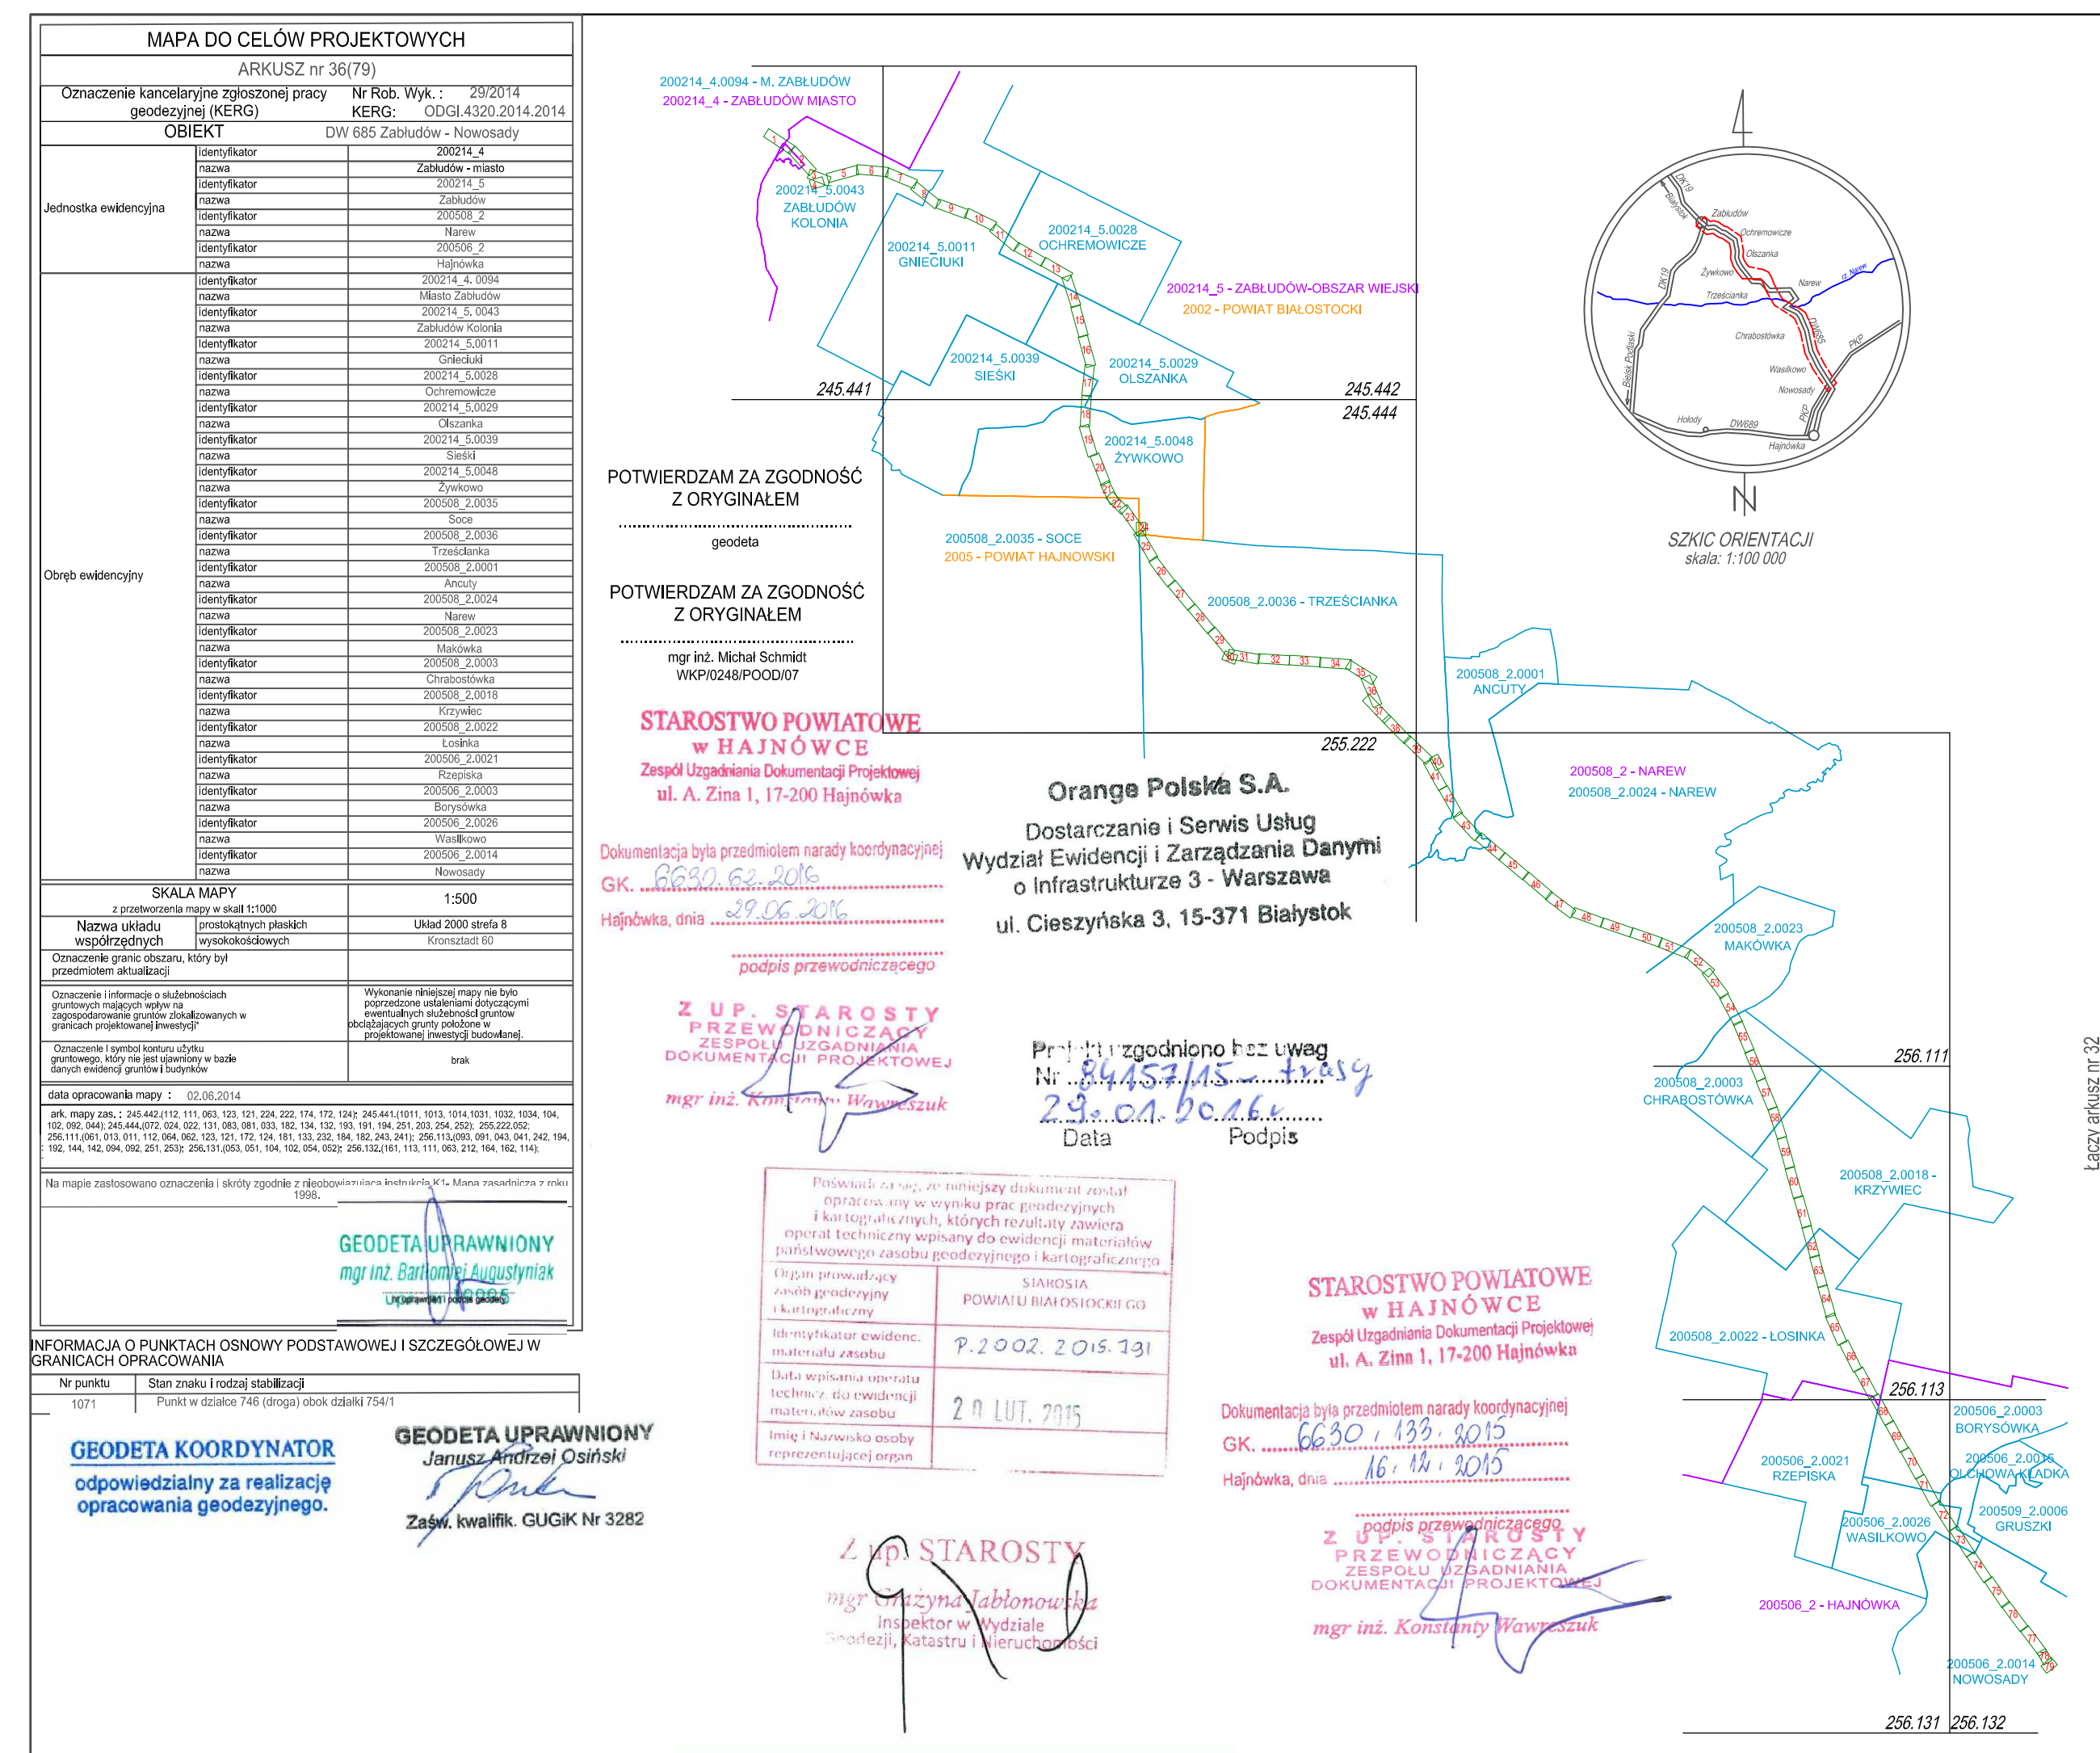 MAPA DO CELÓW PROJEKTOWYCH
ARKUSZ nr 36(79)
Oznaczenie kancelaryjne zgłoszonej pracy geodezyjnej (KERG)
Nr Rob. Wyk. : 29/2014
KERG: ODGI.4320.2014.2014
OBIEKT DW 685 Zabłudów - Nowosady
Jednostka ewidencyjna
identyfikator 200214_4
nazwa Zabłudów - miasto
identyfikator 200214_5
nazwa Zabłudów
identyfikator 200508_2
nazwa Narew
identyfikator 200506_2
nazwa Hajnówka
Obręb ewidencyjny
identyfikator 200214_4. 0094
nazwa Miasto Zabłudów
identyfikator 200214_5. 0043
nazwa Zabłudów Kolonia
Identyfikator 200214_5.0011
nazwa Gnieciuki
identyfikator 200214_5.0028
nazwa Ochremowicze
identyfikator 200214_5.0029
nazwa Olszanka
identyfikator 200214_5.0039
nazwa Sieśki
identyfikator 200214_5.0048
nazwa Żywkowo
identyfikator 200508_2.0035
nazwa Soce
identyfikator 200508_2.0036
nazwa Trześcianka
identyfikator 200508_2.0001
nazwa Ancuty
identyfikator 200508_2.0024
nazwa Narew
identyfikator 200508_2.0023
nazwa Makówka
identyfikator 200508_2.0003
nazwa Chrabostówka
identyfikator 200508_2.0018
nazwa Krzywiec
identyfikator 200508_2.0022
nazwa Łosinka
identyfikator 200506_2.0021
nazwa Rzepiska
identyfikator 200506_2.0003
nazwa Borysówka
identyfikator 200506_2.0026
nazwa Wasilkowo
identyfikator 200506_2.0014
nazwa Nowosady
SKALA MAPY
z przetworzenia mapy w skali 1:1000
1:500
Nazwa układu współrzędnych
prostokątnych płaskich Układ 2000 strefa 8
wysokokościowych Kronsztadt 60
Oznaczenie granic obszaru, który był
przedmiotem aktualizacji
Oznaczenie i informacje o służebnościach
gruntowych mających wpływ na
zagospodarowanie gruntów zlokalizowanych w
granicach projektowanej inwestycji*
Wykonanie niniejszej mapy nie było
poprzedzone ustaleniami dotyczącymi
ewentualnych służebności gruntów
obciążających grunty położone w
projektowanej inwestycji budowlanej.
Oznaczenie i symbol konturu użytku
gruntowego, który nie jest ujawniony w bazie
danych ewidencji gruntów i budynków
brak
data opracowania mapy : 02.06.2014
ark. mapy zas. : 245.442.(112, 111, 063, 123, 121, 224, 222, 174, 172, 124); 245.441.(1011, 1013, 1014,1031, 1032, 1034, 104,
102, 092, 044); 245.444.(072, 024, 022, 131, 083, 081, 033, 182, 134, 132, 193, 191, 194, 251, 203, 254, 252); 255.222.052;
256.111.(061, 013, 011, 112, 064, 062, 123, 121, 172, 124, 181, 133, 232, 184, 182, 243, 241); 256.113.(093, 091, 043, 041, 242, 194,
192, 144, 142, 094, 092, 251, 253); 256.131.(053, 051, 104, 102, 054, 052); 256.132.(161, 113, 111, 063, 212, 164, 162, 114);
Na mapie zastosowano oznaczenia i skróty zgodnie z nieobowiązującą instrukcją K1- Mapa zasadnicza z roku
1998.
GEODETA UPRAWNIONY
mgr inż. Bartłomiej Augustyniak
nr uprawnień i podpis geodety
INFORMACJA O PUNKTACH OSNOWY PODSTAWOWEJ I SZCZEGÓŁOWEJ W
GRANICACH OPRACOWANIA
Nr punktu Stan znaku i rodzaj stabilizacji
1071 Punkt w działce 746 (droga) obok działki 754/1
GEODETA KOORDYNATOR
odpowiedzialny za realizację
opracowania geodezyjnego.
GEODETA UPRAWNIONY
Janusz Andrzej Osiński
Zaśw. kwalifik. GUGiK Nr 3282
POTWIERDZAM ZA ZGODNOŚĆ
Z ORYGINAŁEM
geodeta
POTWIERDZAM ZA ZGODNOŚĆ
Z ORYGINAŁEM
mgr inż. Michał Schmidt
WKP/0248/POOD/07
STAROSTWO POWIATOWE
w HAJNÓWCE
Zespół Uzgadniania Dokumentacji Projektowej
ul. A. Zina 1, 17-200 Hajnówka
Dokumentacja była przedmiotem narady koordynacyjnej
GK. 6630.62.2016
Hajnówka, dnia 29.06.2016
podpis przewodniczącego
Z UP. STAROSTY
PRZEWODNICZĄCY
ZESPOŁU UZGADNIANIA
DOKUMENTACJI PROJEKTOWEJ
mgr inż. Konstanty Wawreszuk
Orange Polska S.A.
Dostarczanie i Serwis Usług
Wydział Ewidencji i Zarządzania Danymi
o Infrastrukturze 3 - Warszawa
ul. Cieszyńska 3, 15-371 Białystok
Projekt uzgodniono bez uwag
Nr 84157/15 - trasy
29.01.2016r
Data Podpis
Poświadcza się, że niniejszy dokument został
opracowany w wyniku prac geodezyjnych
i kartograficznych, których rezultaty zawiera
operat techniczny wpisany do ewidencji materiałów
państwowego zasobu geodezyjnego i kartograficznego
Organ prowadzący
zasób geodezyjny
i kartograficzny
STAROSTA
POWIATU BIAŁOSTOCKIEGO
Identyfikator ewidenc.
materiału zasobu
P.2002.2015.791
Data wpisania operatu
technicz. do ewidencji
materiałów zasobu
20 LUT. 2015
Imię i Nazwisko osoby
reprezentującej organ
Z up. STAROSTY
mgr Grażyna Jabłonowska
Inspektor w Wydziale
Geodezji, Katastru i Nieruchomości
STAROSTWO POWIATOWE
w HAJNÓWCE
Zespół Uzgadniania Dokumentacji Projektowej
ul. A. Zina 1, 17-200 Hajnówka
Dokumentacja była przedmiotem narady koordynacyjnej
GK. 6630.133.2015
Hajnówka, dnia 16.12.2015
podpis przewodniczącego
Z UP. STAROSTY
PRZEWODNICZĄCY
ZESPOŁU UZGADNIANIA
DOKUMENTACJI PROJEKTOWEJ
mgr inż. Konstanty Wawreszuk
200214_4.0094 - M. ZABŁUDÓW
200214_4 - ZABŁUDÓW MIASTO
200214_5.0043
ZABŁUDÓW
KOLONIA
200214_5.0011
GNIECIUKI
200214_5.0028
OCHREMOWICZE
200214_5 - ZABŁUDÓW-OBSZAR WIEJSKI
2002 - POWIAT BIAŁOSTOCKI
200214_5.0039
SIEŚKI
200214_5.0029
OLSZANKA
245.441
245.442
245.444
200214_5.0048
ŻYWKOWO
200508_2.0035 - SOCE
2005 - POWIAT HAJNOWSKI
200508_2.0036 - TRZEŚCIANKA
200508_2.0001
ANCUTY
255.222
200508_2 - NAREW
200508_2.0024 - NAREW
200508_2.0023
MAKÓWKA
256.111
200508_2.0003
CHRABOSTÓWKA
200508_2.0018 -
KRZYWIEC
200508_2.0022 - ŁOSINKA
256.113
200506_2.0003
BORYSÓWKA
200506_2.0021
RZEPISKA
200506_2.0015
OLCHOWA KŁADKA
200509_2.0006
GRUSZKI
200506_2.0026
WASILKOWO
200506_2 - HAJNÓWKA
200506_2.0014
NOWOSADY
256.131
256.132
1 2 3 4 5 6 7 8 9 10 11 12 13 14 15 16 17 18 19 20 21 22 23 24 25 26 27 28 29 30 31 32 33 34 35 36 37 38 39 40 41 42 43 44 45 46 47 48 49 50 51 52 53 54 55 56 57 58 59 60 61 62 63 64 65 66 67 68 69 70 71 72 73 74 75 76 77 78 79
DK19
Białystok
Zabłudów
Ochremowicze
Olszanka
Żywkowo
Narew
rz. Narew
Trześcianka
DK19
Chrabostówka
DW685
PKP
Bielsk Podlaski
Wasilkowo
Nowosady
PKP
Hołody
DW689
Hajnówka
N
SZKIC ORIENTACJI
skala: 1:100 000
Łączy arkusz nr 32